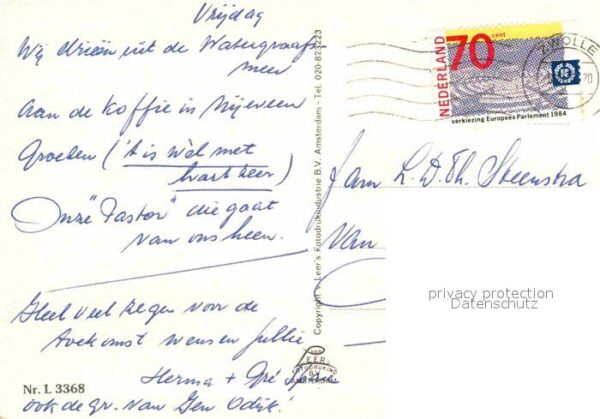 Vrijdag
Wij drieën uit de Watergraafs
meer
aan de koffie in Nijeveen
Groeten ('t is wel met
hartzeer)
Onze "Pastor" die gaat
van ons heen.
Heel veel zegen voor de
toekomst wensen jullie
Herma + Gré
ook de gr. van Gen Odijk!
Nr. L 3368
Copyright v. Leer's Fotodrukindustrie B.V. Amsterdam - Tel. 020-823223
VAN
LEER
FOTODRUKIND
B.V.
AMSTERDAM
NEDERLAND
70 cent
verkiezing Europees Parlement 1984
ZWOLLE
Fam L. D. Th. Steenstra
Van
privacy protection
Datenschutz